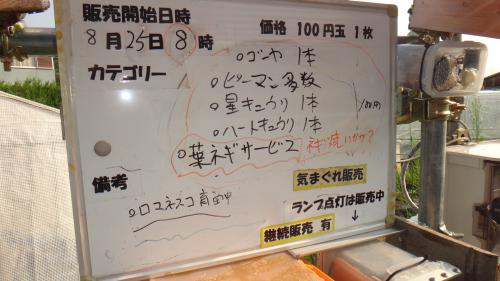 販売開始日時
価格 100円玉 1枚
8月25日 8時
カテゴリー
○ゴーヤ 1本
○ピーマン多数
○星キュウリ 1本
100円
○ハートキュウリ 1本
○葉ネギサービス
ネギ焼いかが?
備考
気まぐれ販売
○ロマネスコ育苗中
ランプ点灯は販売中
↓
継続販売 有